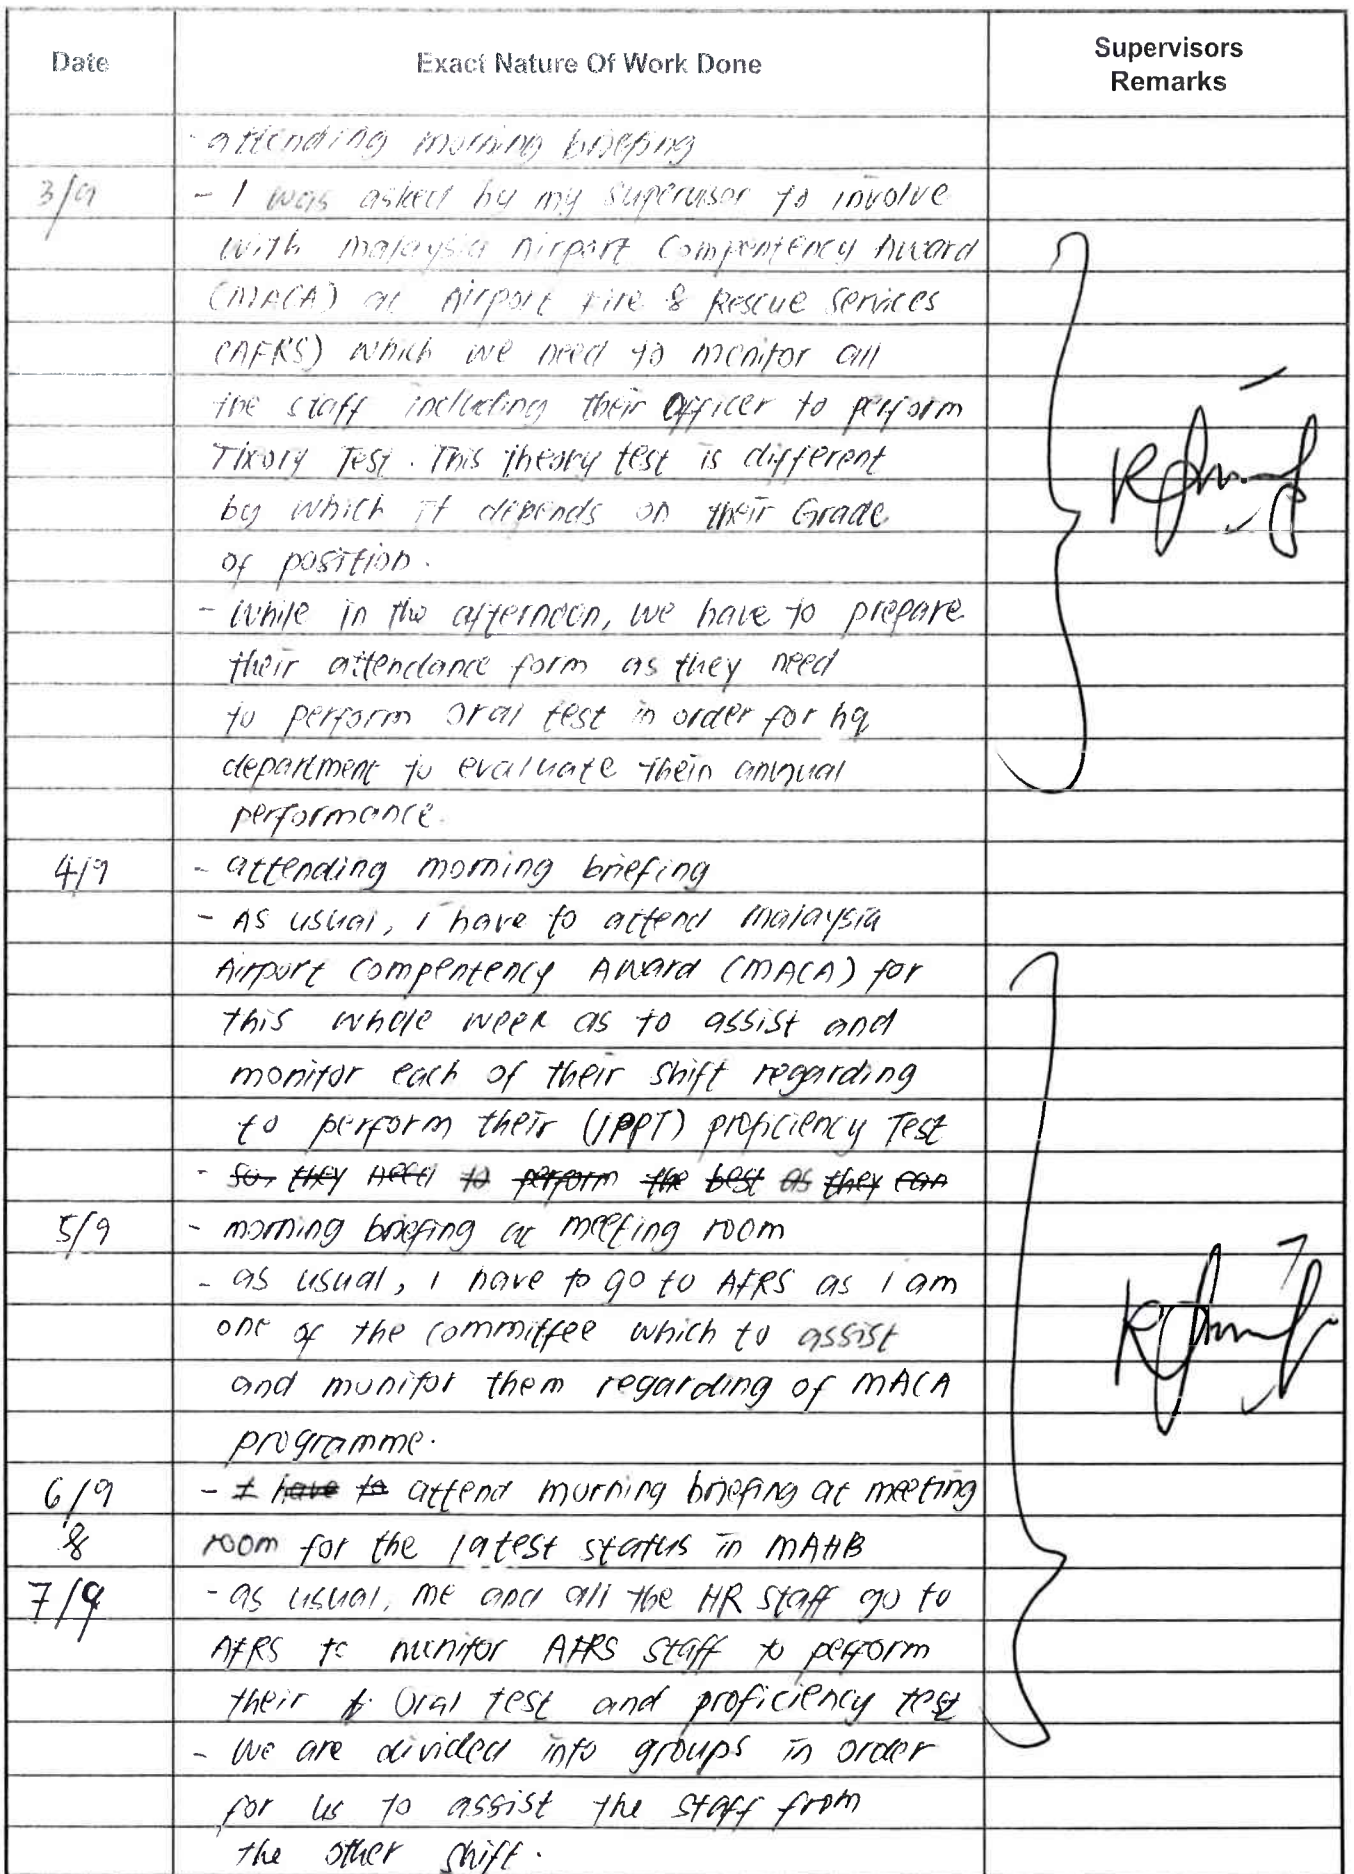 Date Exact Nature Of Work Done Supervisors Remarks
- attending morning briefing
3/9 - I was asked by my supervisor to involve
with malaysia Airport Compentency Award
(MACA) at Airport Fire & Rescue Services
(AFRS) which we need to monitor all
the staff including their officer to perform
Theory Test. This theory test is different
by which it depends on their Grade
of position.
- While in the afternoon, we have to prepare
their attendance form as they need
to perform oral test in order for hq
department to evaluate their annual
performance.
4/9 - attending morning briefing
- As usual, I have to attend malaysia
Airport Compentency Award (MACA) for
this whole week as to assist and
monitor each of their shift regarding
to perform their (IPPT) proficiency Test
- so, they need to perform the best as they can
5/9 - morning briefing at meeting room
- as usual, I have to go to AFRS as I am
one of the committee which to assist
and monitor them regarding of MACA
programme.
6/9 - I have to attend morning briefing at meeting
& room for the latest status in MAHB
7/9 - as usual, me and all the HR staff go to
AFRS to monitor AFRS staff to perform
their Oral test and proficiency test
- We are divided into groups in order
for us to assist the staff from
the other shift.